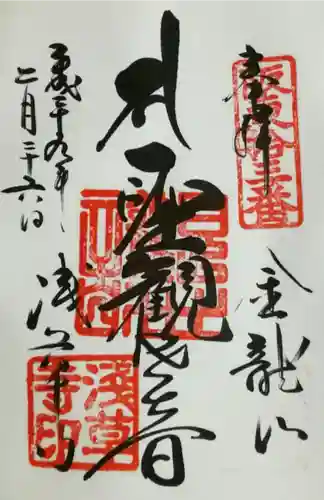 奉拝
坂東拾三番
金龍山
聖観世音
浅草寺
浅草寺印
平成二十九年
二月二十六日